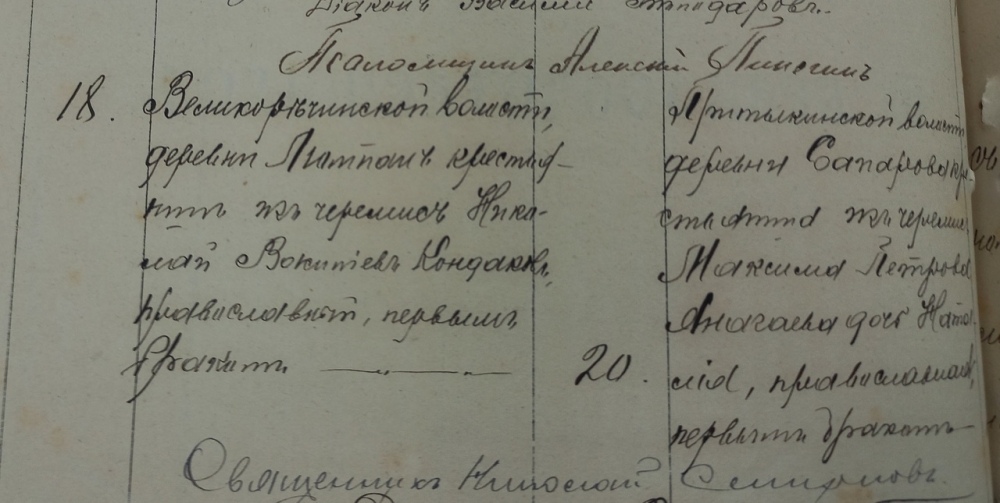 Діаконъ Василій
Псаломщикъ Алексій
18. Великорѣчинской волости,
деревни крестья-
нинъ изъ черемисъ Нико-
лай Кондаковъ,
православный, первымъ
бракомъ
Притыкинской волости
деревни Сапарова кре-
стьянина изъ черемисъ
Максима Петрова
дочь Ната-
20. лія, православная,
первымъ бракомъ
Священникъ Николай Смирновъ.